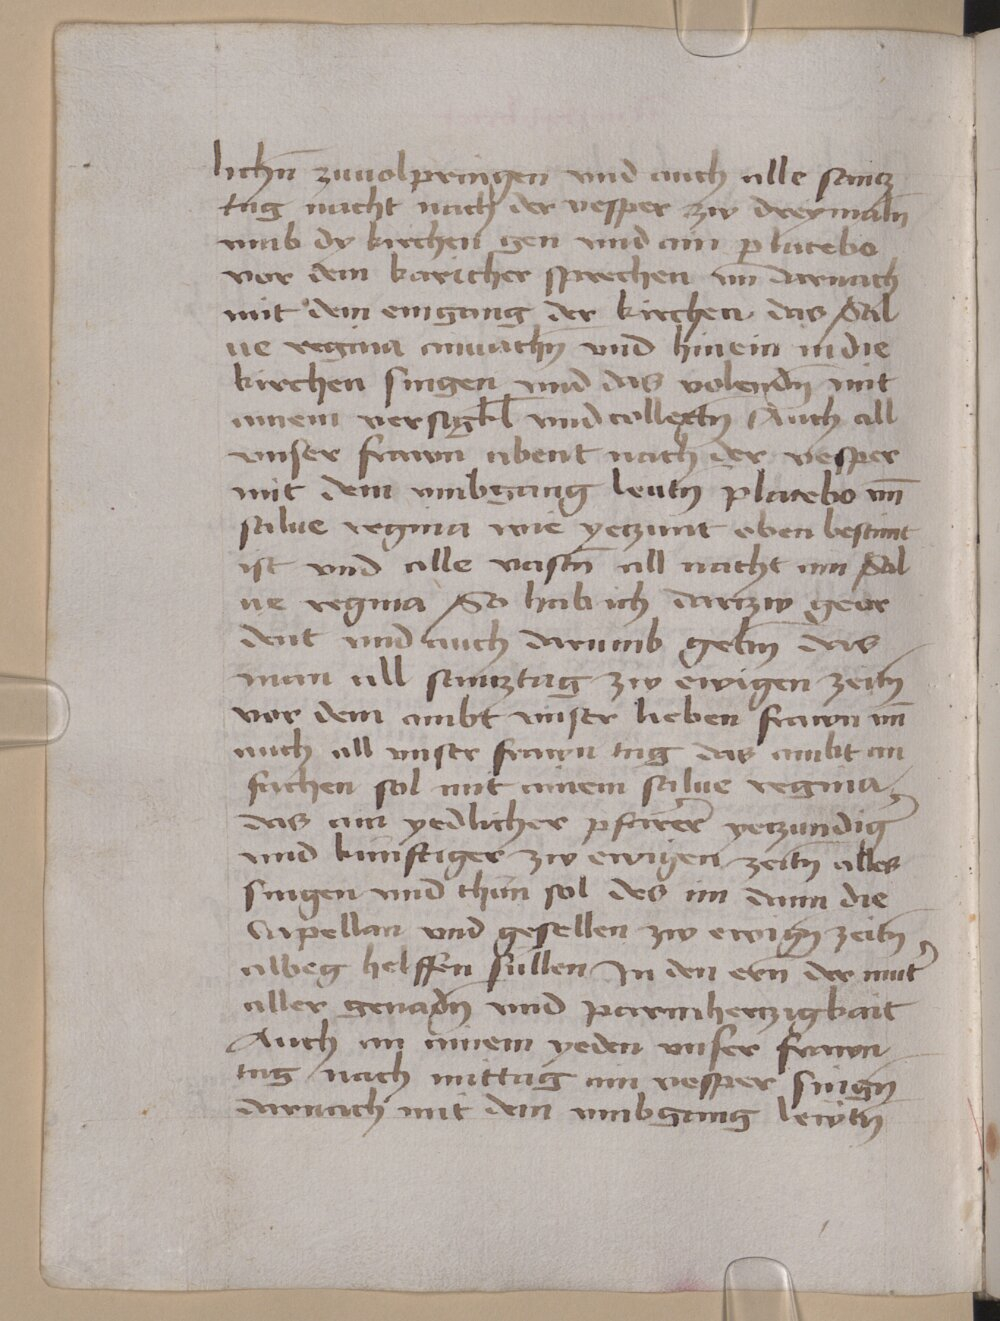 lichn̄ zuuolpringen vnd auch alle samcz
tag nacht nach der vesper zw dreymaln̄
vmb dy kirchen gen vnd ain placebo
vor dem karicher sprechen vn̄ darnach
mit dem eingang der kirchen das Sal
ue regina anuachn̄ vnd hinein in die
kirchen singen vnd das volendn̄ mit
ainem versigkl vnd collectn̄ Auch all
vnser frawn abent nach der vesper
mit dem vmbgang leutn̄ placebo vn̄
salue regina wie yeczunt oben bestimt
ist vnd alle vastn̄ all nacht ain Sal
ue regina So hab ich darczw geor
dent vnd auch darumb gebn̄ das
man all samcztag zw ewigen zeitn̄
vor dem ambt vnser lieben frawn vn̄
auch all vnser frawn tag das ambt an
fachen sol mit ainem salue regina
das ain yedlicher pfarrer yeczundig̉
vnd kunftiger zw ewigen zeitn̄ alles
singen vnd thun sol des im dann die
Capellan vnd gesellen zw ewign̄ zeitn̄
albeg helffen sullen In den ern̄ der mut̉
aller genadn̄ vnd parmherczigkait
Auch an ainem yeden vnser frawn
tag nach mittag ain vesper singn̄
darnach mit dem vmbgang lewtn̄